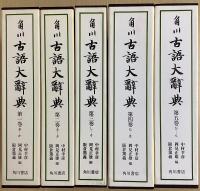 角川
古語大辭典
第一巻
中村幸彦
岡見正雄
阪倉篤義
角川書店
角川
古語大辭典
第二巻
中村幸彦
岡見正雄
阪倉篤義
角川書店
角川
古語大辭典
第三巻
中村幸彦
岡見正雄
阪倉篤義
角川書店
角川
古語大辭典
第四巻
中村幸彦
岡見正雄
阪倉篤義
角川書店
角川
古語大辭典
第五巻
中村幸彦
岡見正雄
阪倉篤義
角川書店